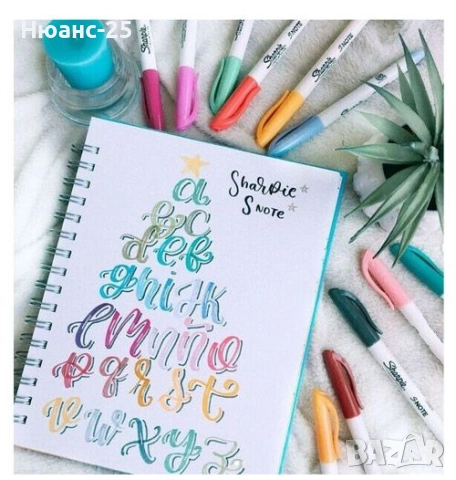 Нюанс-25
Sharpie
S NOTE
a
bc
def
ghijk
lmnño
pqrst
vwxyz
Sharpie
S NOTE
Sharpie S·NOTE
BAZAR